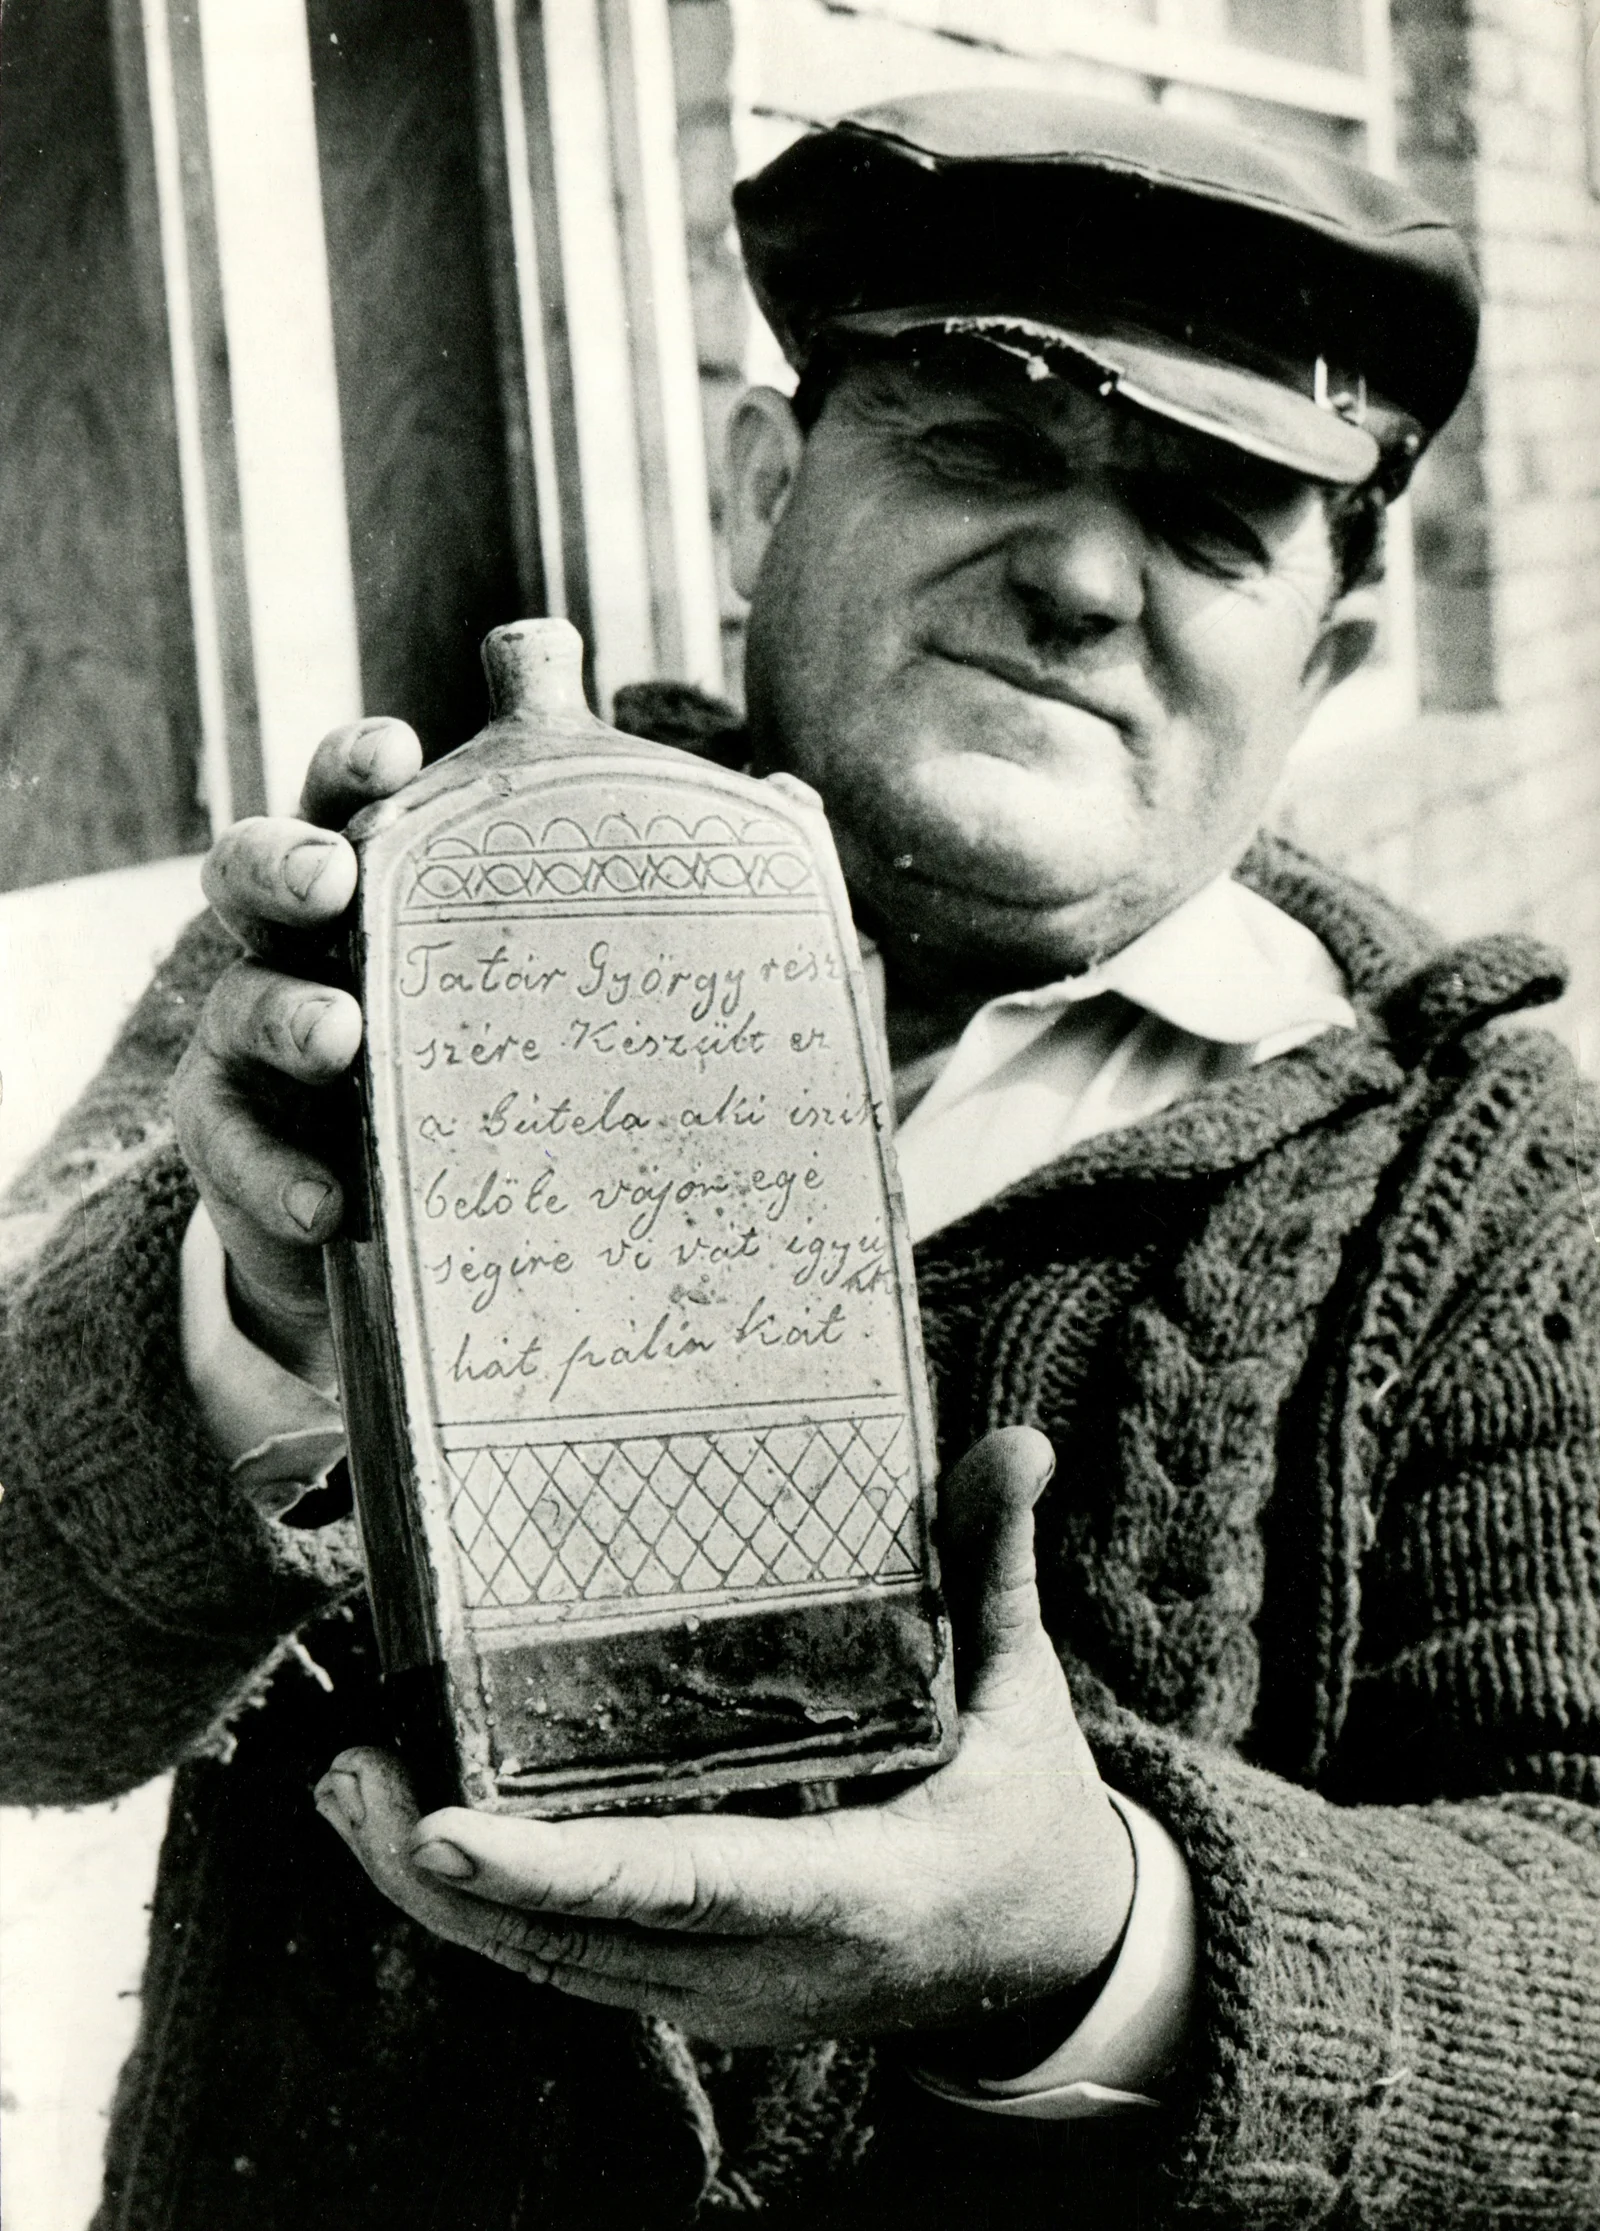 Tatár György rész
szére Készült ez
a butela aki iszik
belöle vajon egé
ségire vi vát igyu
nk
hát pálin kát